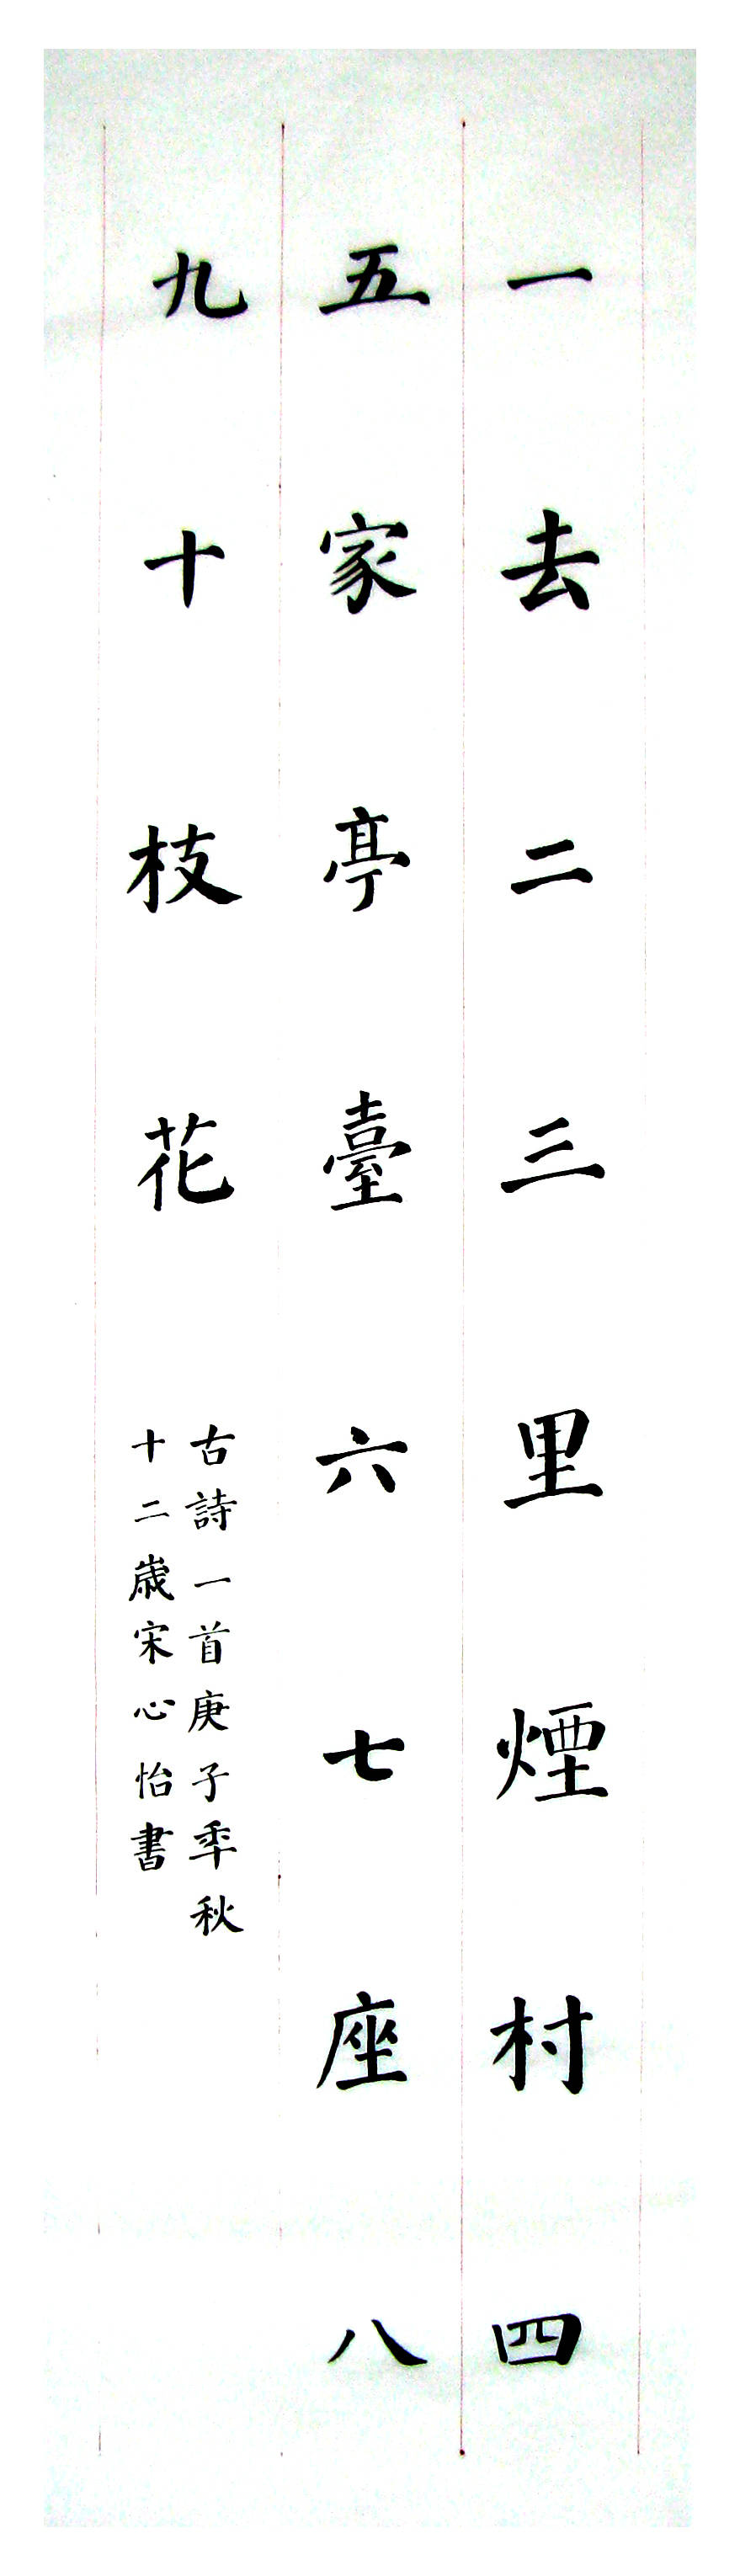 一去二三里煙村四
五家亭臺六七座八
九十枝花
古詩一首庚子季秋
十二歲宋心怡書